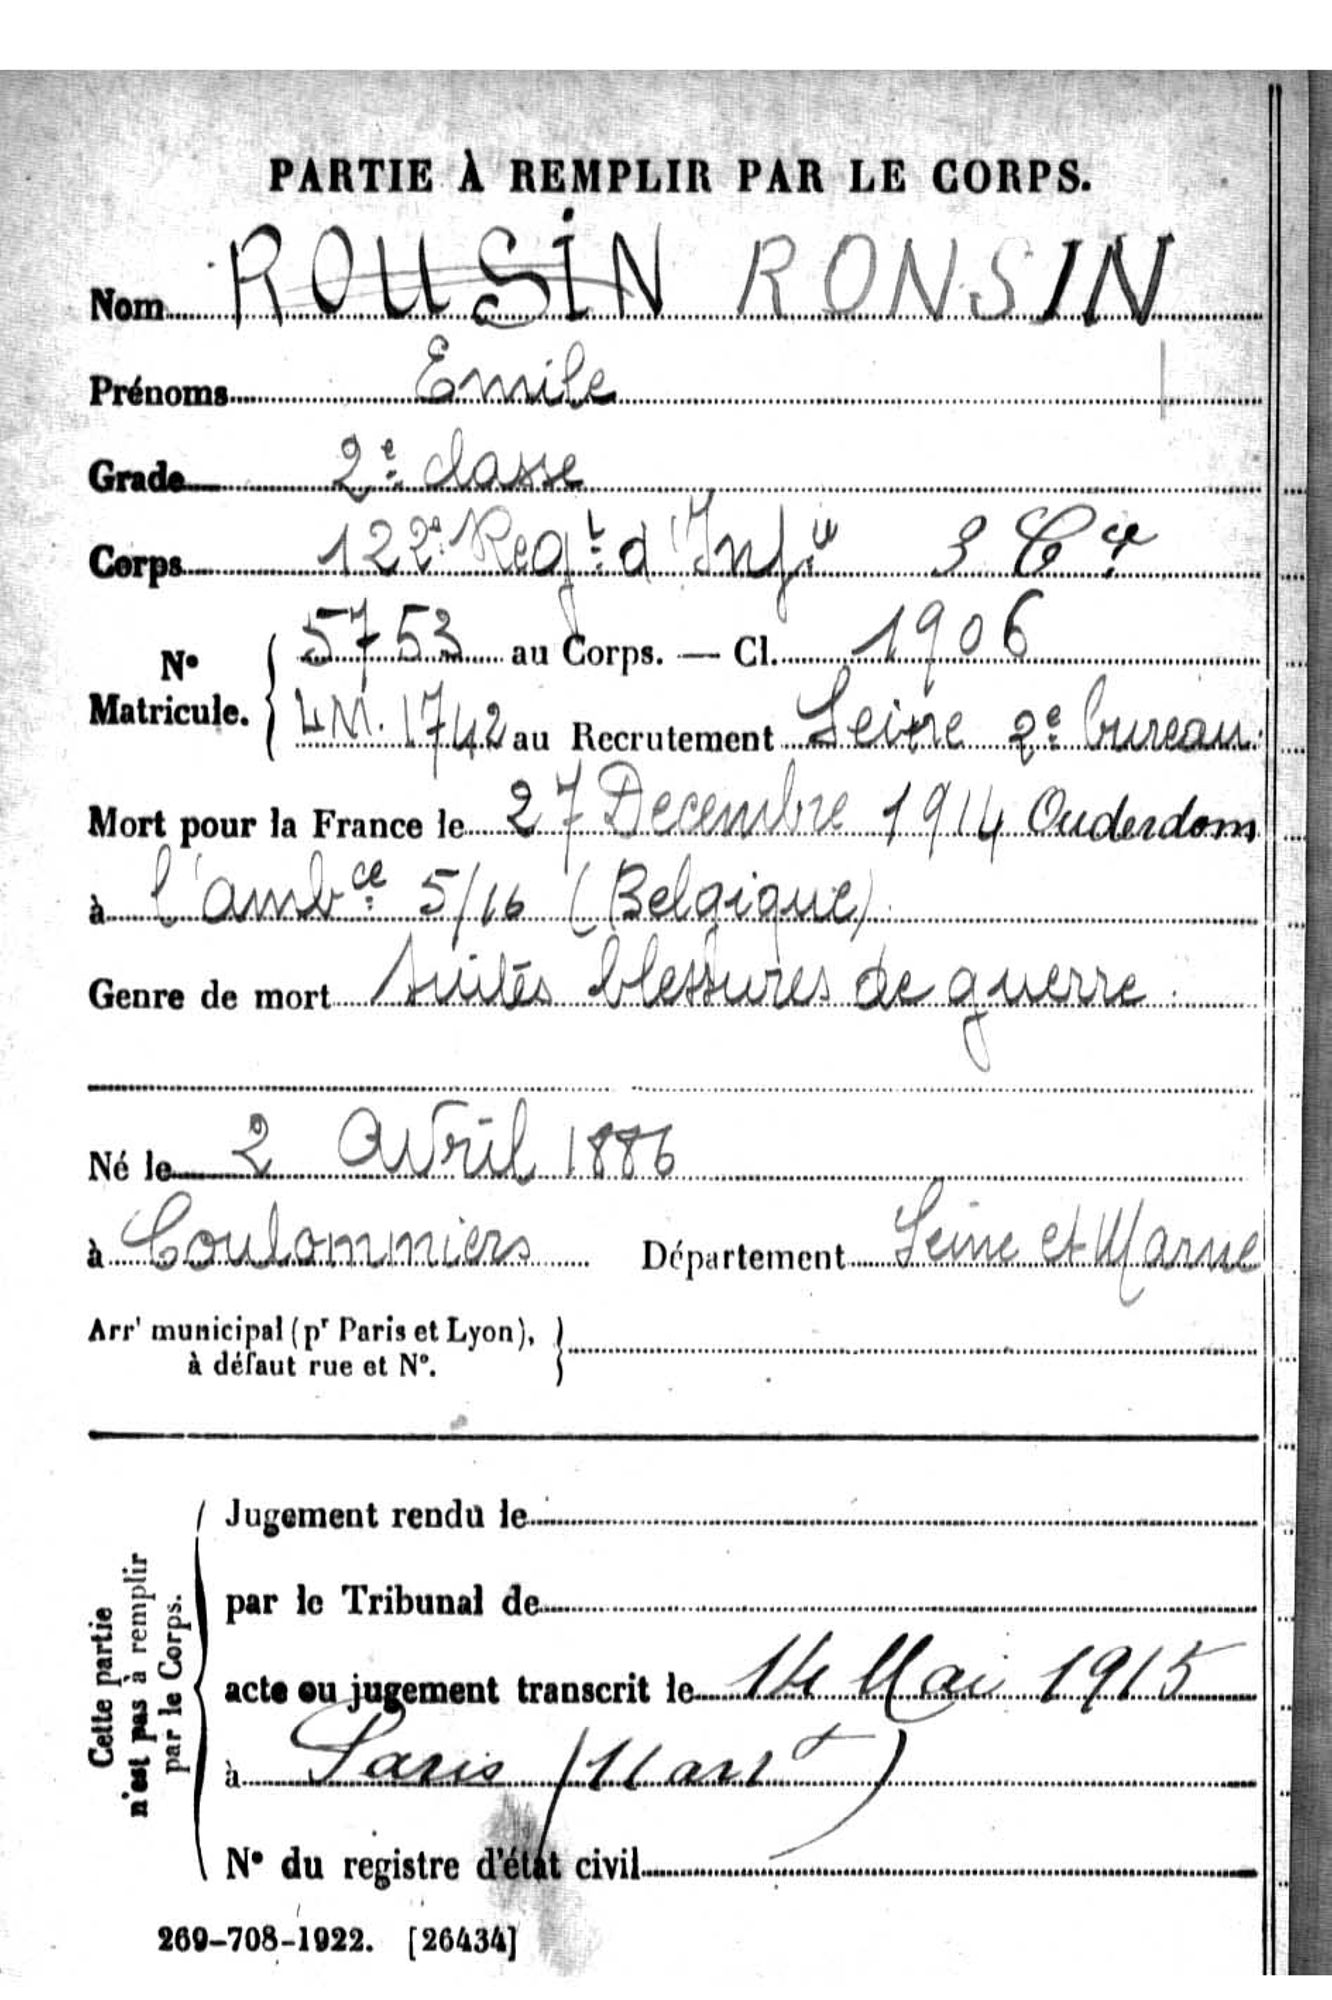 PARTIE À REMPLIR PAR LE CORPS.
Nom ROUSIN RONSIN
Prénoms Emile
Grade 2e classe
Corps 122e Regt d'Infie 3 Cie
No Matricule. 5753 au Corps. — Cl. 1906
LM. 1742 au Recrutement Seine 2e bureau
Mort pour la France le 27 Decembre 1914 Ouderdom
à l'ambce 5/16 (Belgique)
Genre de mort Suites blessures de guerre
Né le 2 Avril 1886
à Coulommiers Département Seine et Marne
Arrt municipal (pr Paris et Lyon),
à défaut rue et No.
Cette partie
n'est pas à remplir
par le Corps.
Jugement rendu le
par le Tribunal de
acte ou jugement transcrit le 14 Mai 1915
à Paris (11 arrt)
No du registre d'état civil
269-708-1922. [26434]